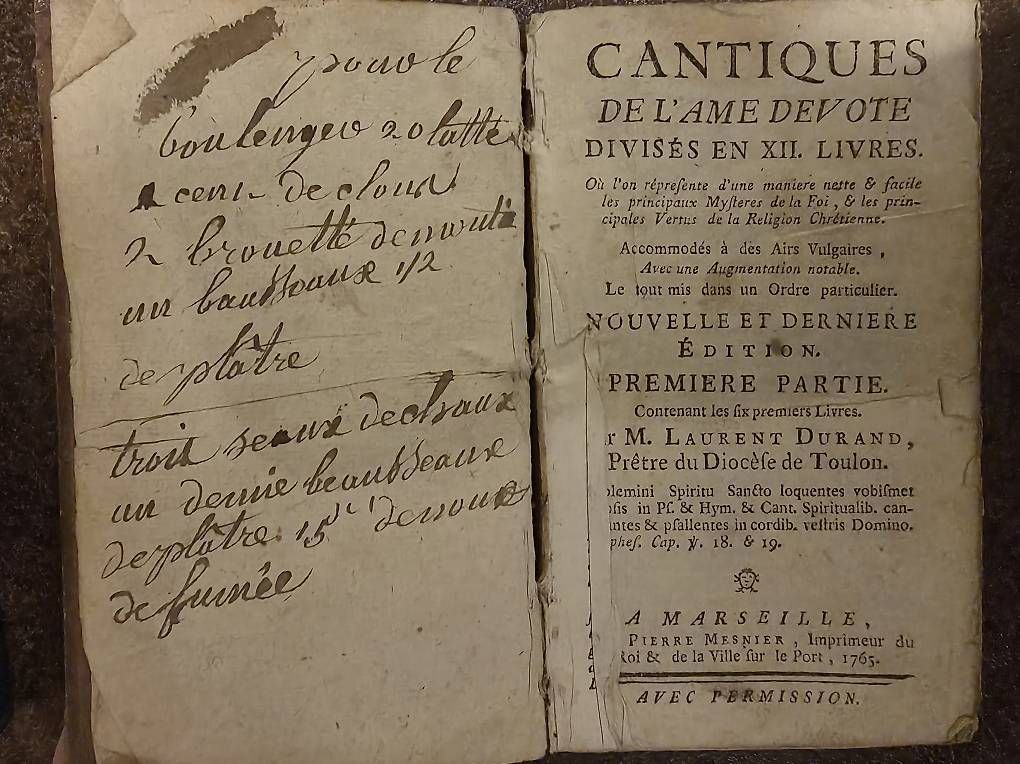 pour le
boulenger 20 latte
1 cent de cloux
2 brouette de
un beausseaux 1/2
de plâtre
trois seaux de chaux
un demie beausseaux
de plâtre 15 de noux
de fumée
CANTIQUES
DE L'AME DEVOTE
DIVISÉS EN XII. LIVRES.
Où l'on répreſente d'une maniere nette & facile
les principaux Myſteres de la Foi, & les prin-
cipales Vertus de la Religion Chrétienne.
Accommodés à des Airs Vulgaires,
Avec une Augmentation notable.
Le tout mis dans un Ordre particulier.
NOUVELLE ET DERNIERE
ÉDITION.
PREMIERE PARTIE.
Contenant les ſix premiers Livres.
r M. LAURENT DURAND,
Prêtre du Diocèſe de Toulon.
plemini Spiritu Sancto loquentes vobiſmet
pſis in Pſ. & Hym. & Cant. Spiritualib. can-
ntes & pſallentes in cordib. veſtris Domino.
pheſ. Cap. V. 18. & 19.
A MARSEILLE,
PIERRE MESNIER, Imprimeur du
Roi & de la Ville ſur le Port, 1765.
AVEC PERMISSION.